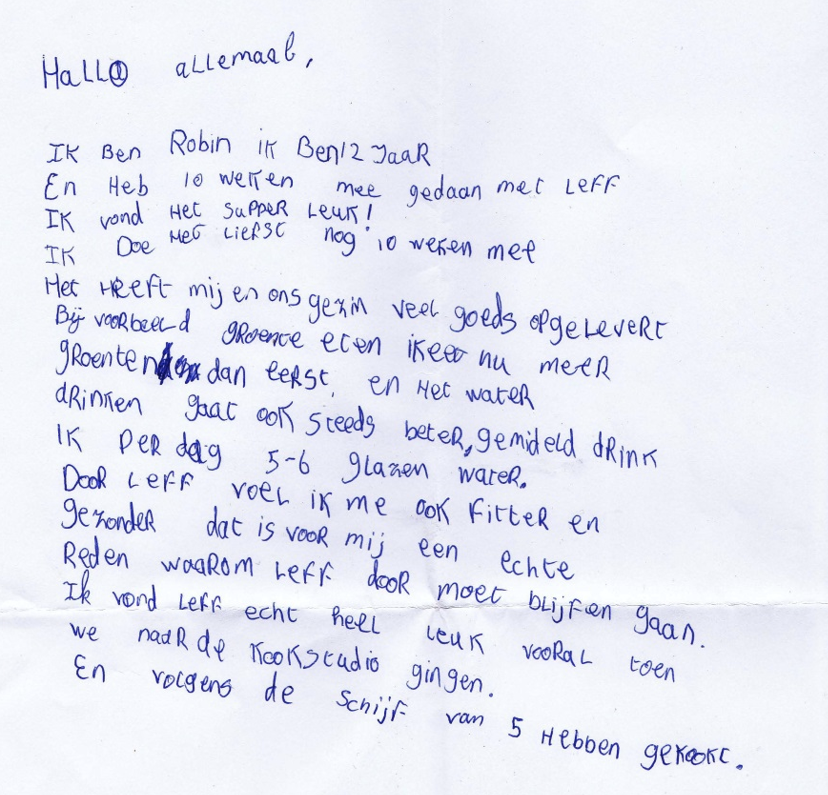 Hallo allemaal,
Ik Ben Robin ik Ben 12 Jaar
En Heb 10 weken mee gedaan met Leff
Ik vond Het supper Leuk!
Ik Doe Het Liefst nog 10 weken met
Het Heeft mij en ons gezin veel goeds opgelevert
Bij voorbeeld groente eten ik eet nu meer
groenten dan eerst, en Het water
drinken gaat ook steeds beter, gemideld drink
Ik per dag 5-6 glazen water.
Door Leff voel ik me ook fitter en
gezonder dat is voor mij een echte
Reden waarom Leff door moet blijfen gaan.
Ik vond Leff echt heel leuk vooral toen
we naar de Kookstudio gingen.
En volgens de Schijf van 5 Hebben gekookt.